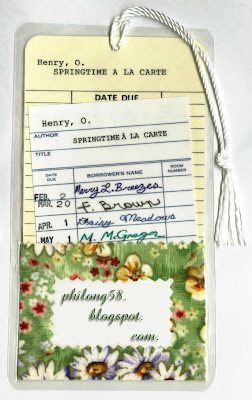 Henry, O.
SPRINGTIME A LA CARTE
DATE DUE
Henry, O.
AUTHOR
SPRINGTIME À LA CARTE
TITLE
DATE DUE
BORROWER'S NAME
ROOM NUMBER
FEB 2 Merry L. Breezes
MAR 20 F. Brown
APR. 1 Daisy Meadows
MAY M. McGregor
philong58.
blogspot.
com.